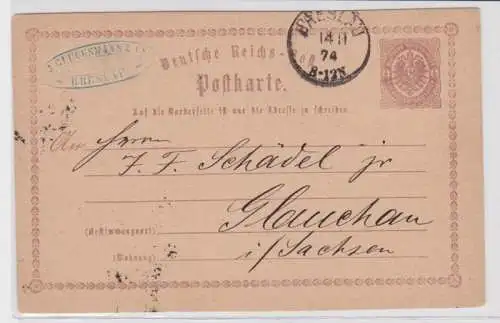 BRESLAU
14 II
74
8-12N
BRESLAU
Deutsche Reichs-Post
Postkarte.
Auf die Vorderseite ist nur die Adresse zu schreiben.
An Herrn
J. F. Schädel jr
Glauchau
(Bestimmungsort)
i/Sachsen
(Wohnung)